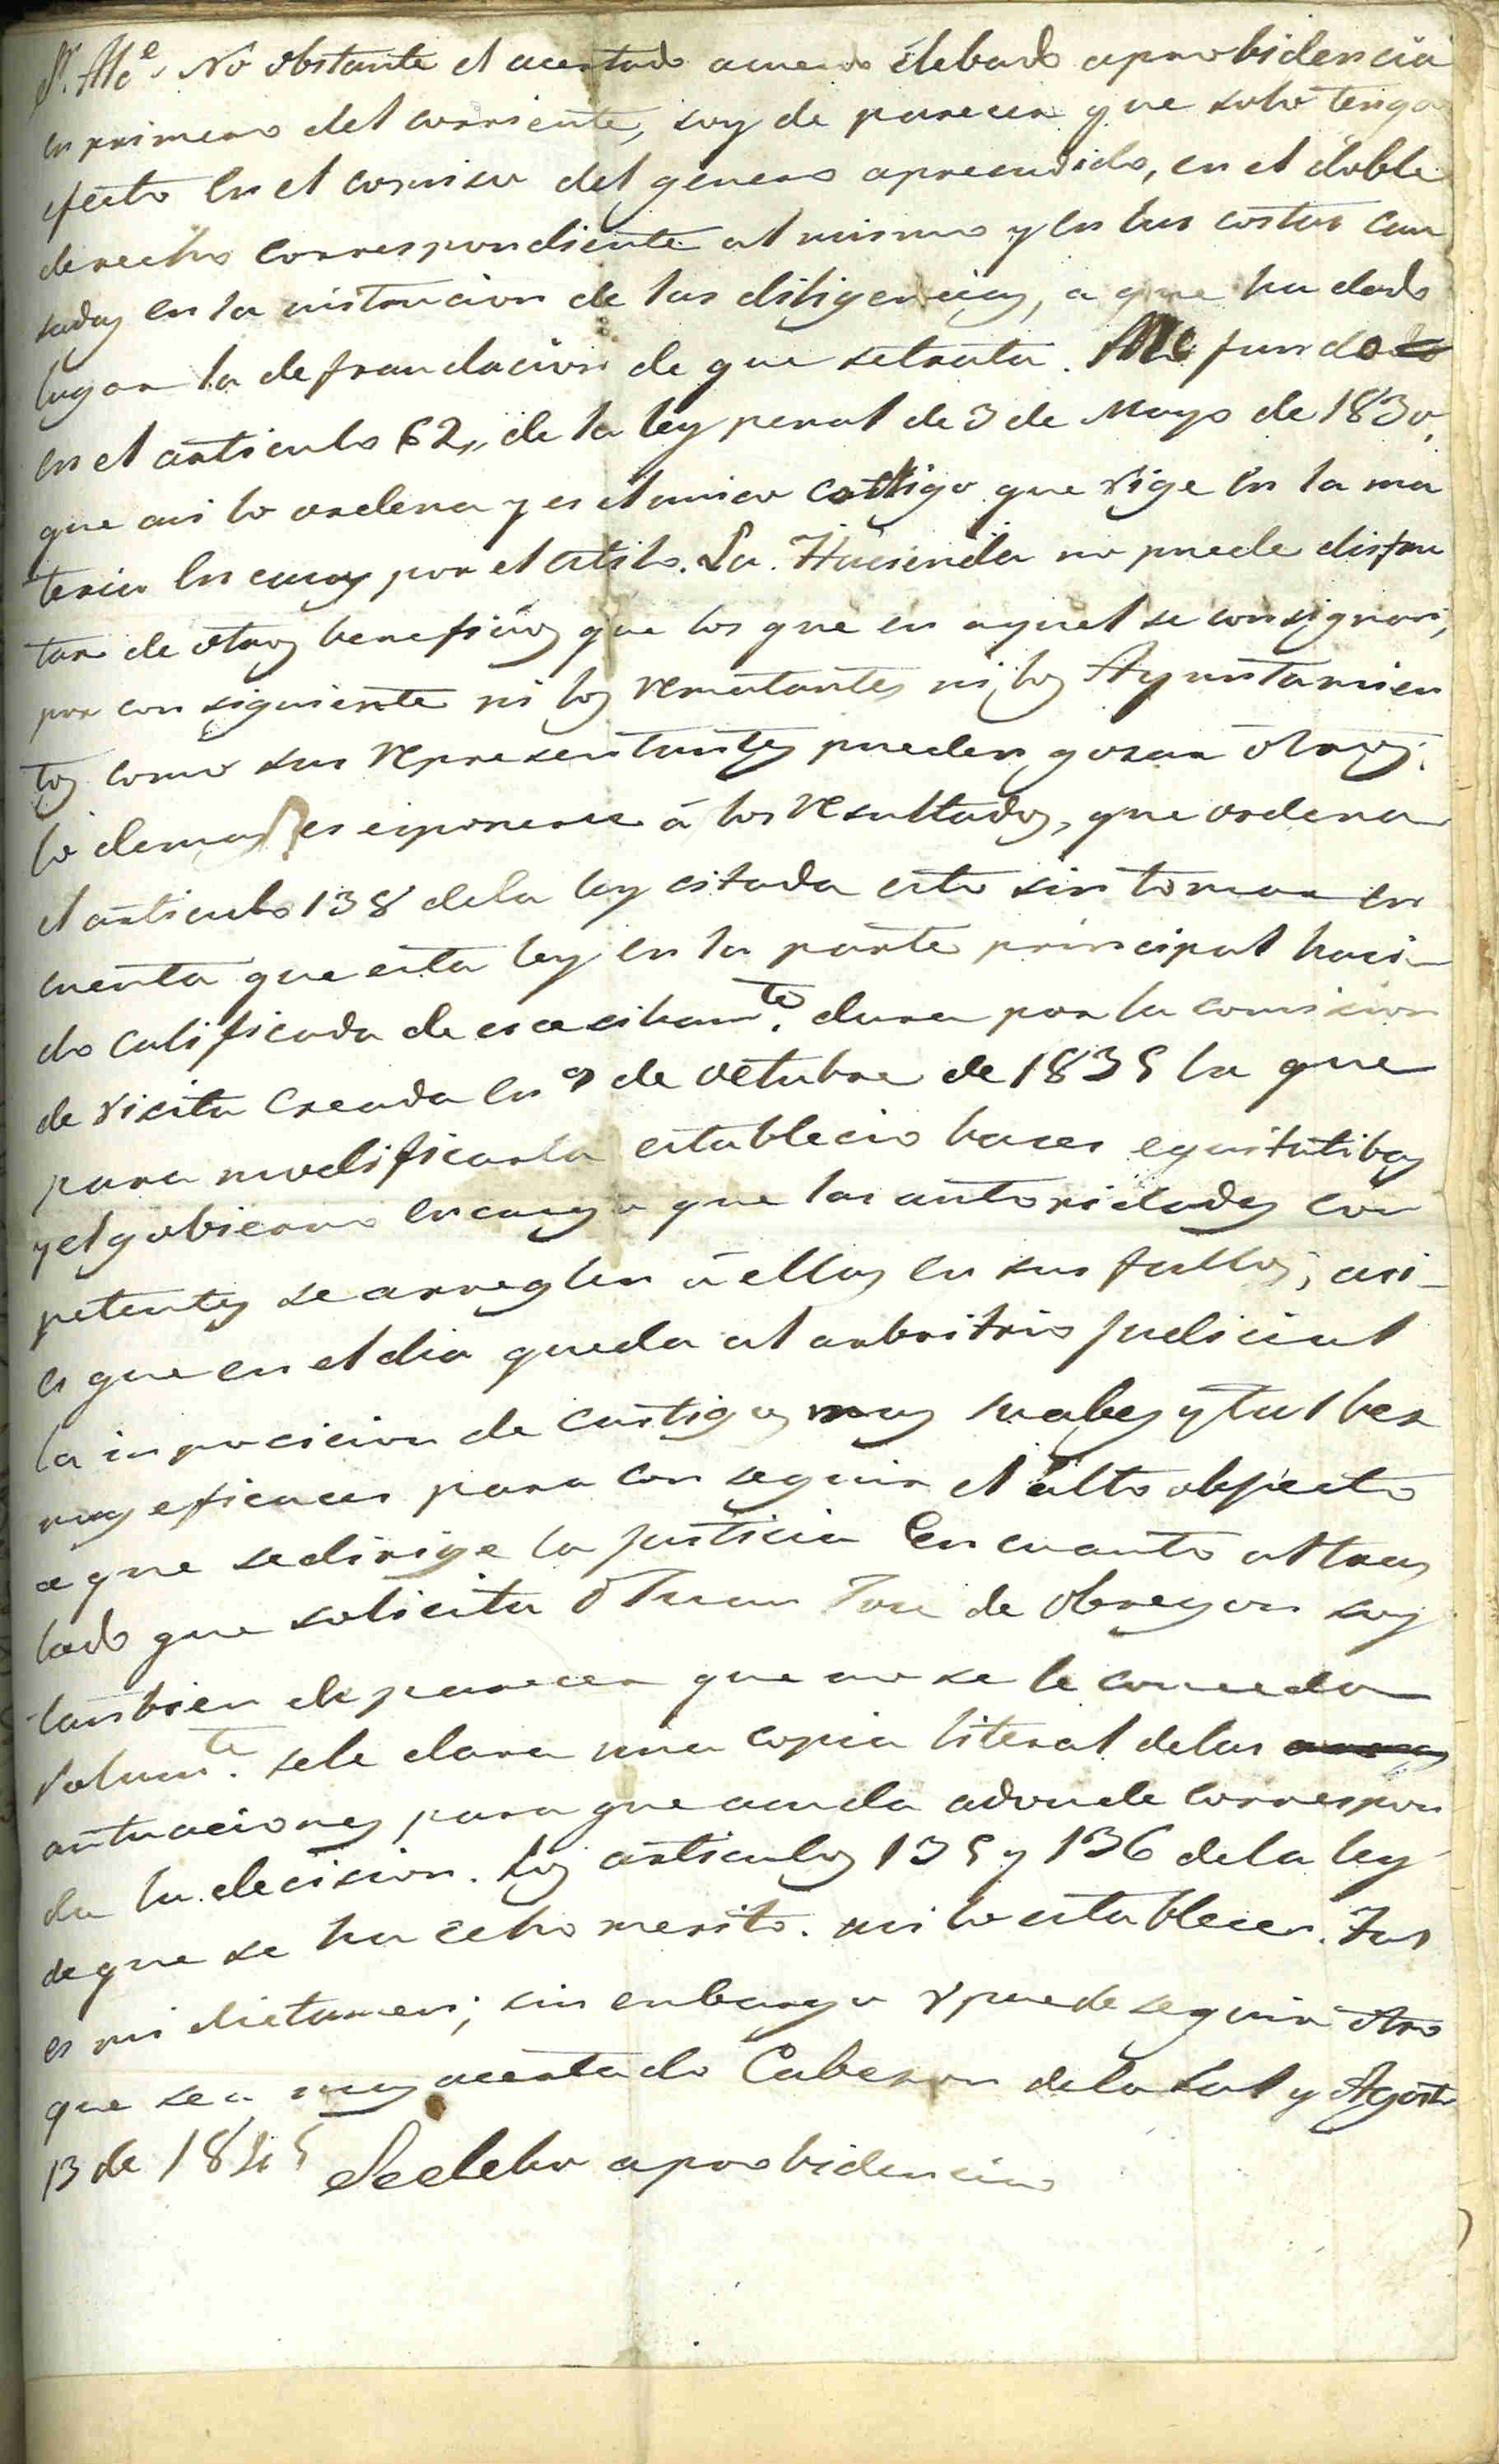 Sr. Alce. No obstante el acertado acuerdo elebado aprobidencia
en primero del corriente, soy de parecer que solo tenga
efecto en el comiso del genero apreendido, en el doble
derecho correspondiente al mismo y en las costas cau
sadas en la instrucion de las diligencias, a que ha dado
lugar la defraudacion de que setrata. Me fundo
en el articulo 62, de la ley penal de 3 de Mayo de 1830,
que asi lo ordena y es el unico codigo que rige en la ma
teria en casos por el estilo. La Hacienda no puede disfru
tar de otros beneficios que los que en aquel se consignan,
por consiguiente ni los rematantes ni los Ayuntamien
tos como sus representantes pueden gosar otros;
lo demas es esponerse á los resultados, que ordena
el articulo 138 dela ley citada esto sin tomar en
cuenta que esta ley en la parte principal ha si-
do calificada de escesibamte. dura por la comision
de visita creada en 9 de octubre de 1835 la que
para modificarla establecio bases equitatibas
y el gobierno encarga que las autoridades com
petentes se arreglen á ellas en sus fallos; asi-
es que en el dia queda al arbitrio judicial
la inposicion de castigos mas suabes y tal bez
mas eficaces para conseguir el alto objecto
a que sedirige la justicia En cuanto al tras
lado que solicita Dn Juan Jose de Obregon soy
tambien de parecer que no se le conceda
solamte. sele dara una copia literal delas
autuaciones para que acuda adonde correspon
da la decision. Los articulos 135 y 136 dela ley
de que se ha echo merito. asi lo establecen. Tal
es mi dictamen; sin enbargo V puede seguir otro
que sea mas acertado Cabezon dela Sal y Agosto
13 de 1845 Seeleba aprobidencia